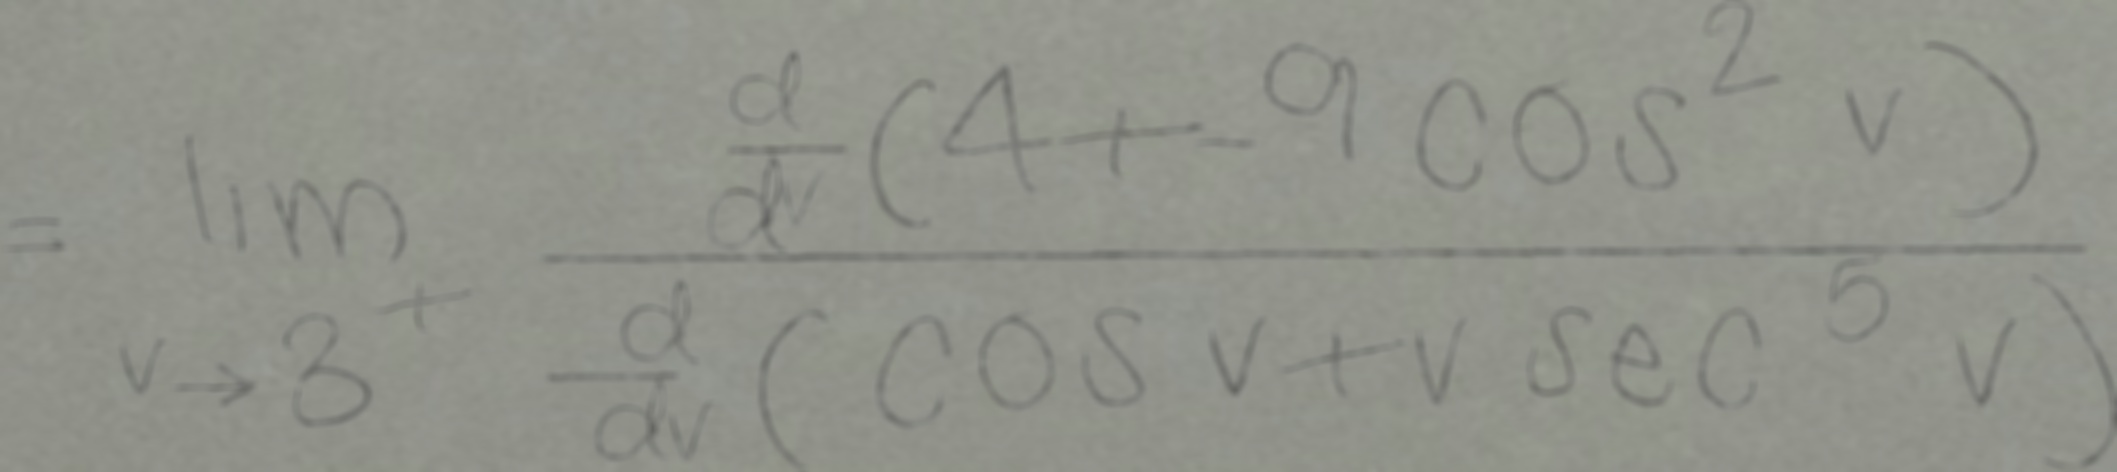 = \lim_{v \to 3^+} \frac{\frac{d}{dv}(4 + -9 \cos^2 v)}{\frac{d}{dv}(\cos v + v \sec^5 v)}